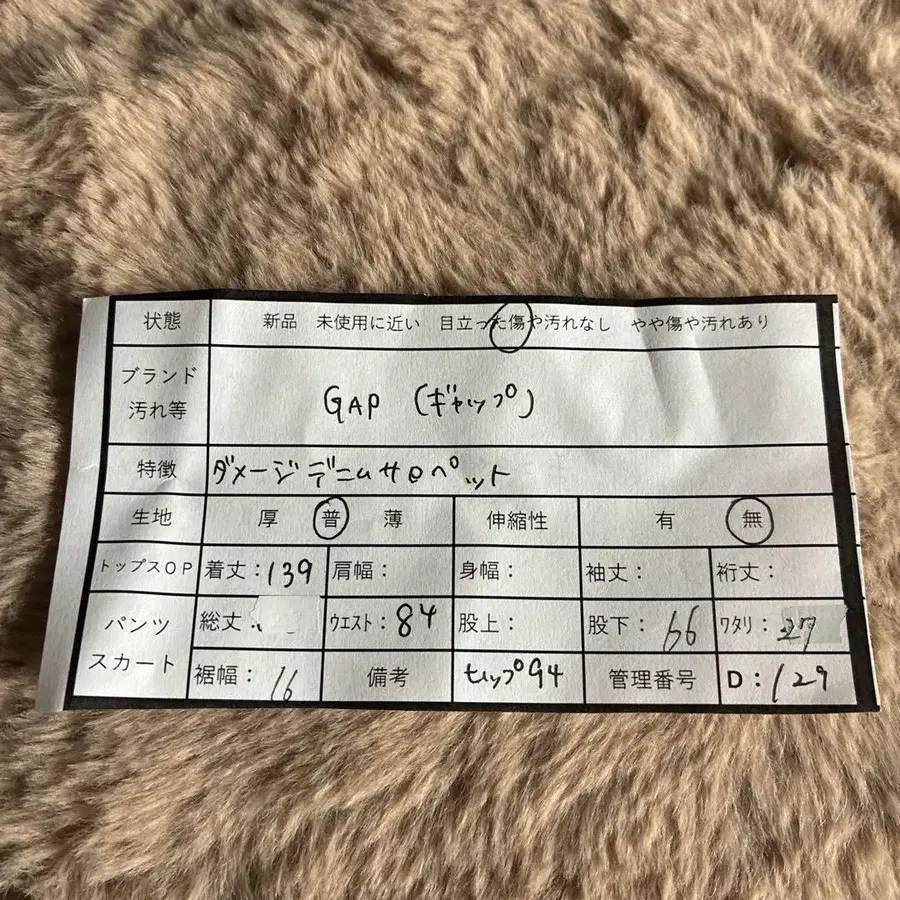 状態 新品 未使用に近い 目立った傷や汚れなし やや傷や汚れあり
ブランド
汚れ等
GAP (ギャップ)
特徴 ダメージデニムサロペット
生地 厚 普 薄 伸縮性 有 無
トップスOP 着丈:139 肩幅: 身幅: 袖丈: 裄丈:
パンツ
スカート
総丈: ウエスト:84 股上: 股下:66 ワタリ:27
裾幅:16 備考 ヒップ94 管理番号 D:129